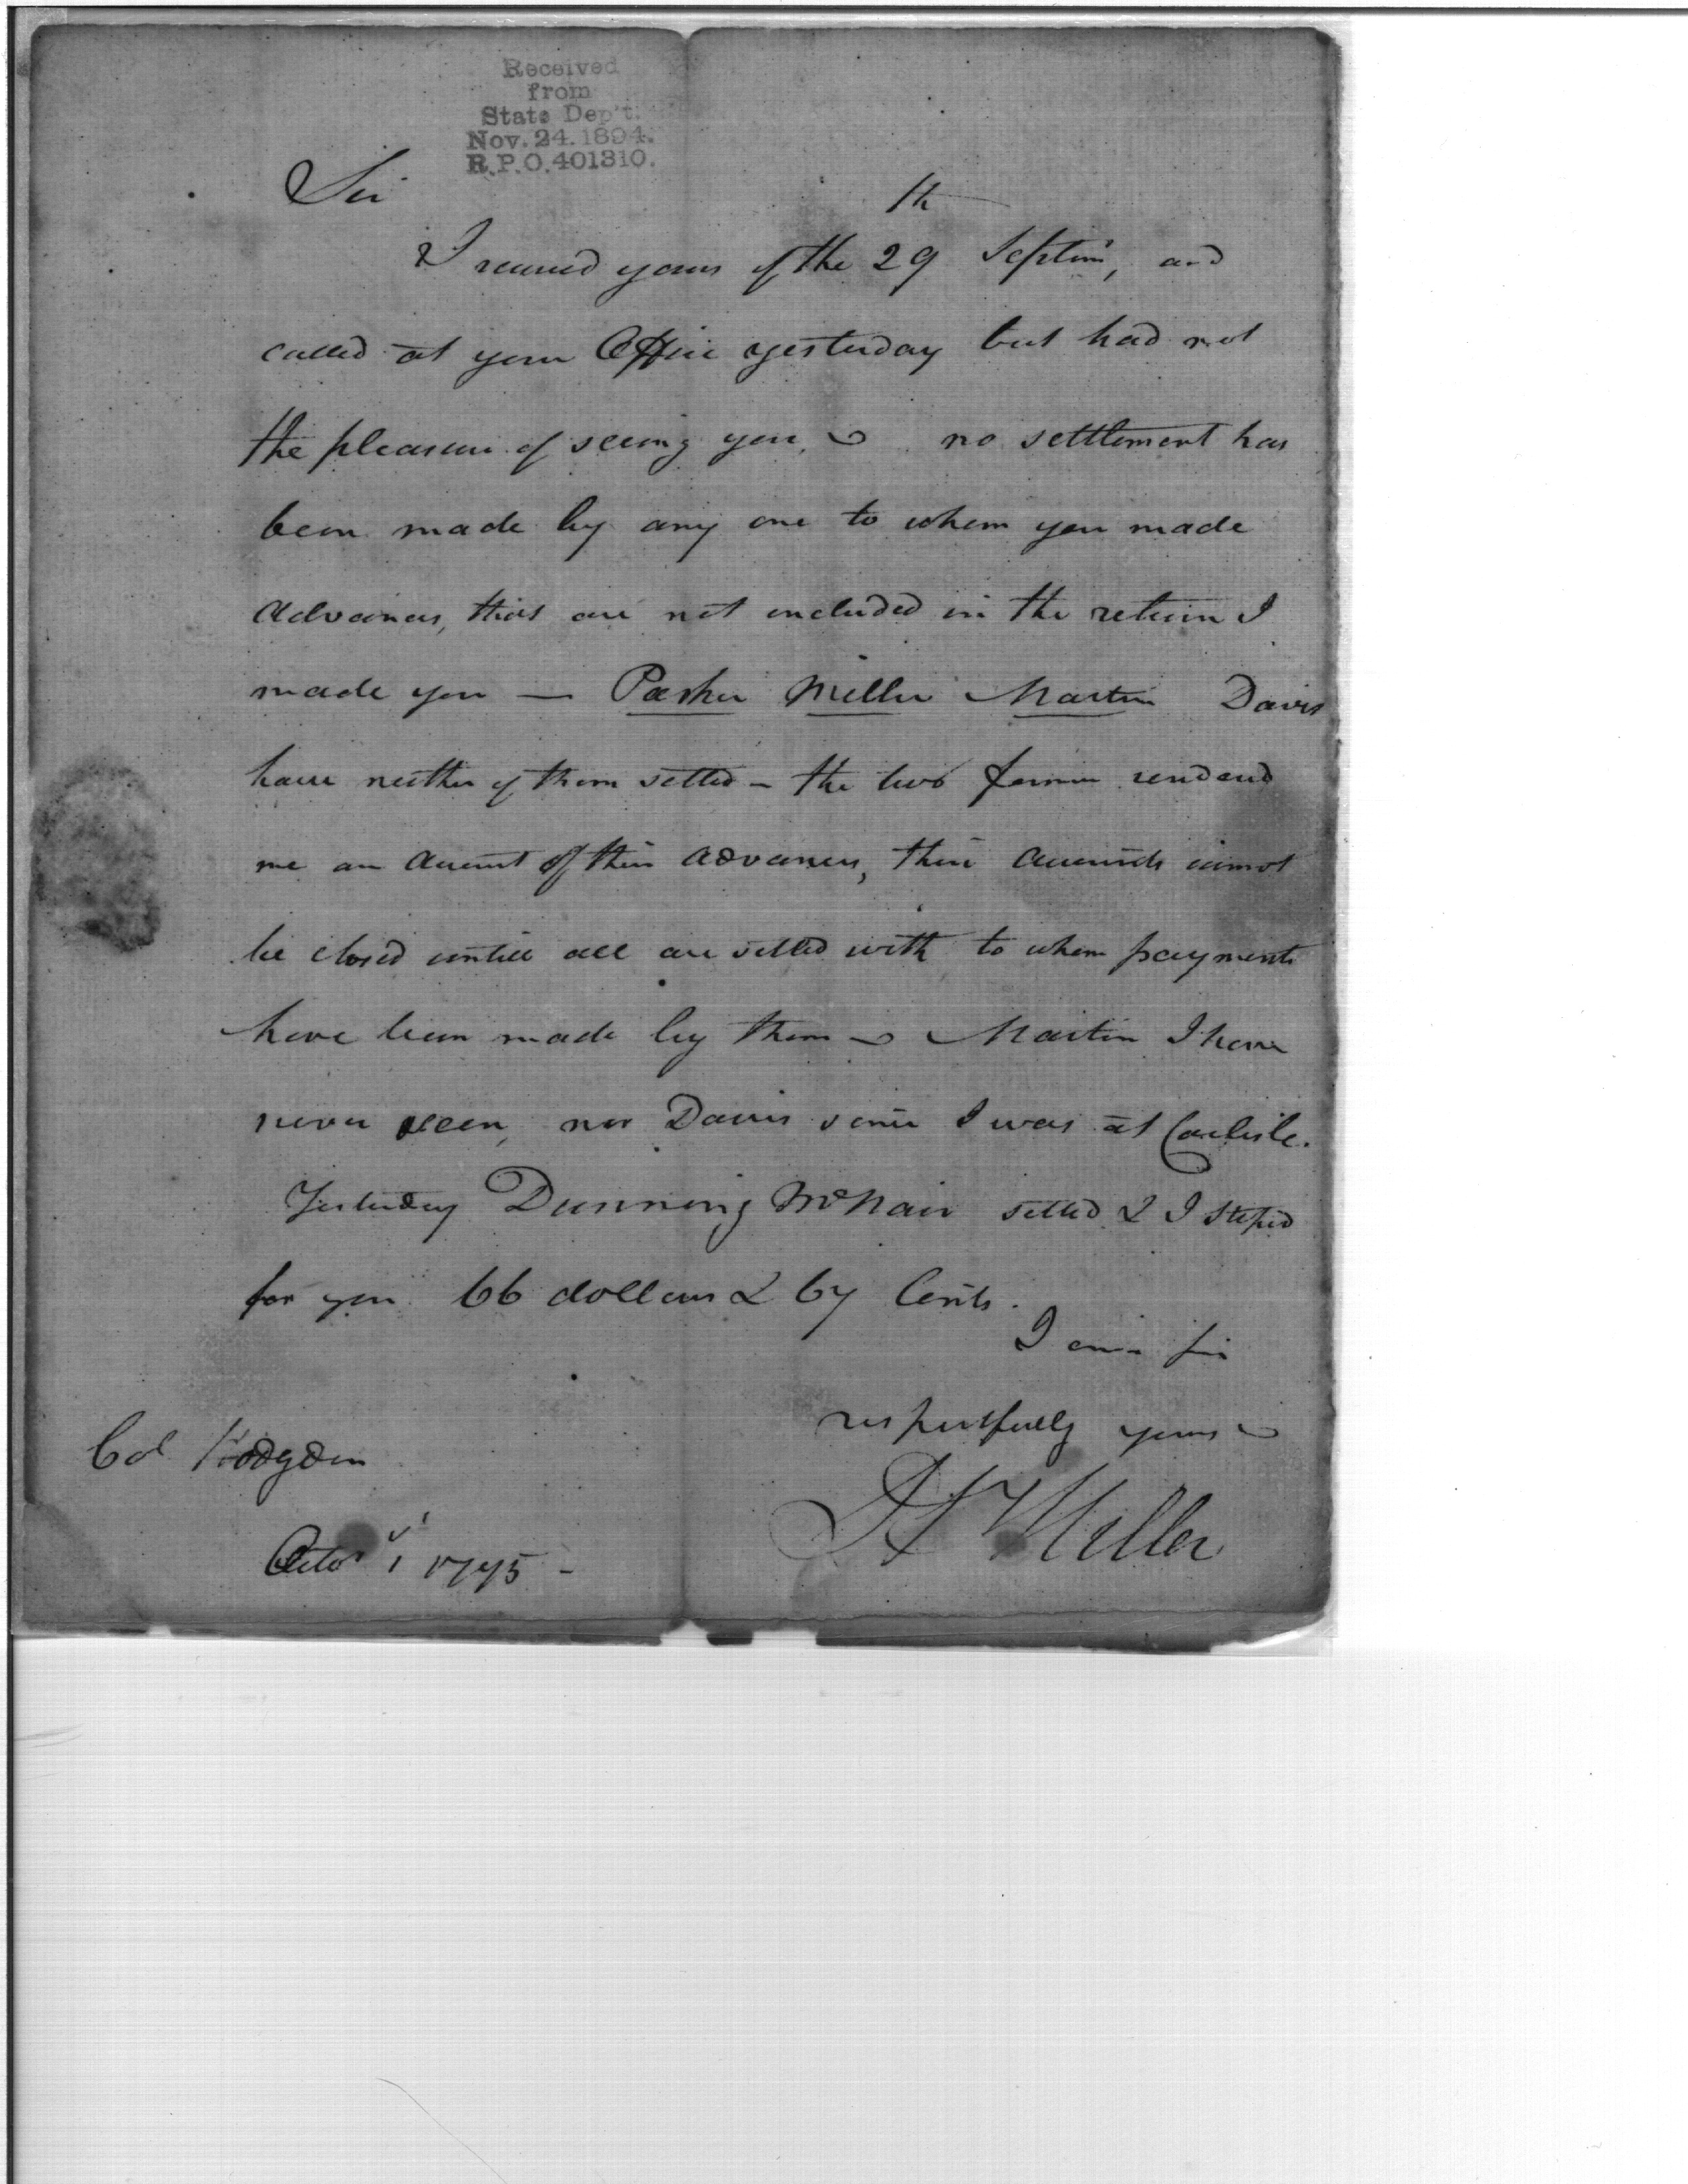 Received
from
State Dep't.
Nov. 24. 1894.
R.P.O. 401310.
Sir
I received yours of the 29th Septem, and
called at your Office yesterday but had not
the pleasure of seeing you, no settlement has
been made by any one to whom you made
Advances, that are not included in the return I
made you — Parker Miller Martin Davis
have neither of them settled - the two former rendered
me an Account of their advances, their Accounts cannot
be closed untill all are settled with to whom payments
have been made by them Martin I have
never seen, nor Davis since I was at Carlisle.
Yesterday Dunning McNair settled & I stoped
for you 66 dollars & 67 Cents.
I am Sir
respectfully yours
Col Hodgdon
Octor 1 1795 -
Miller